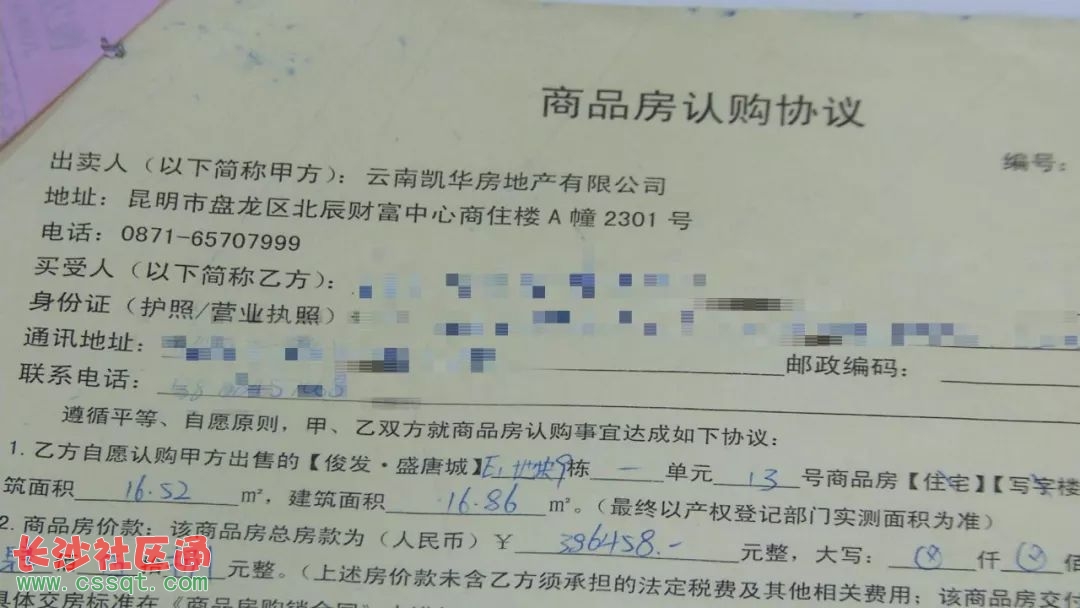 商品房认购协议
编号:
出卖人（以下简称甲方）：云南凯华房地产有限公司
地址：昆明市盘龙区北辰财富中心商住楼A幢2301号
电话：0871-65707999
买受人（以下简称乙方）：
身份证（护照/营业执照）
通讯地址： 邮政编码：
联系电话：
遵循平等、自愿原则，甲、乙双方就商品房认购事宜达成如下协议：
1.乙方自愿认购甲方出售的【俊发·盛唐城】E1地块9栋 一 单元 13 号商品房【住宅】【写字楼
筑面积 16.52 m²，建筑面积 16.86 m²。（最终以产权登记部门实测面积为准）
2.商品房价款：该商品房总房款为（人民币）¥ 396458.- 元整，大写： 仟 佰
元整。（上述房价款未含乙方须承担的法定税费及其他相关费用；该商品房交付
具体交房标准在《商品房购销合同》
长沙社区通
www.cssqt.com